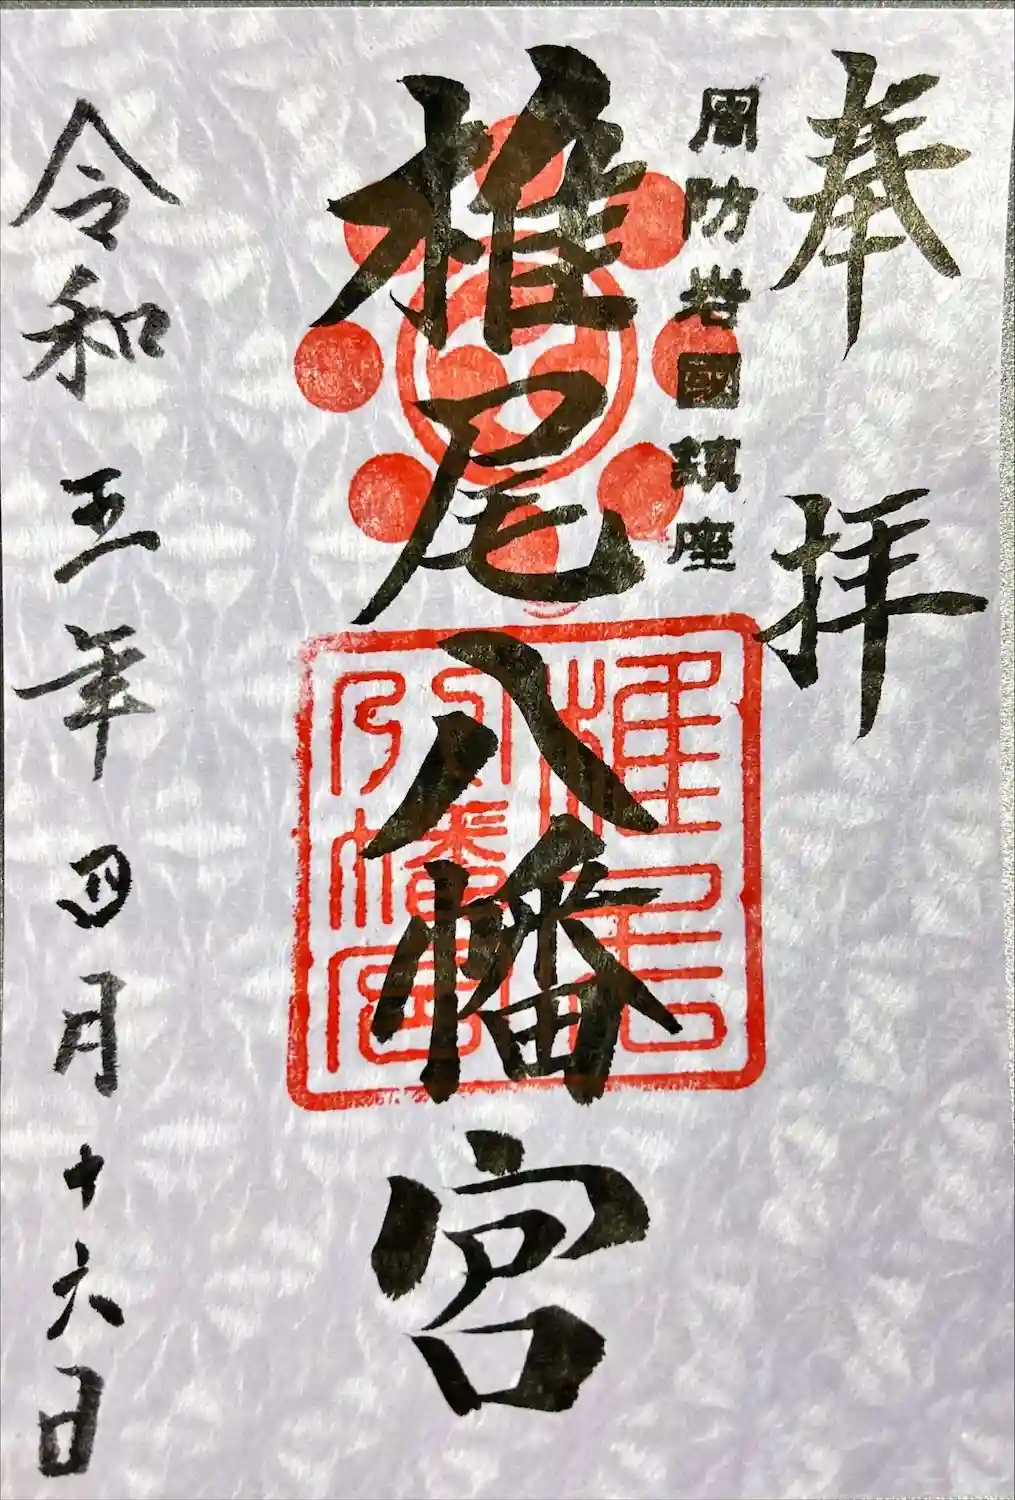 奉拝
周防岩國鎮座
椎尾八幡宮
椎尾八幡宮
令和五年四月十六日